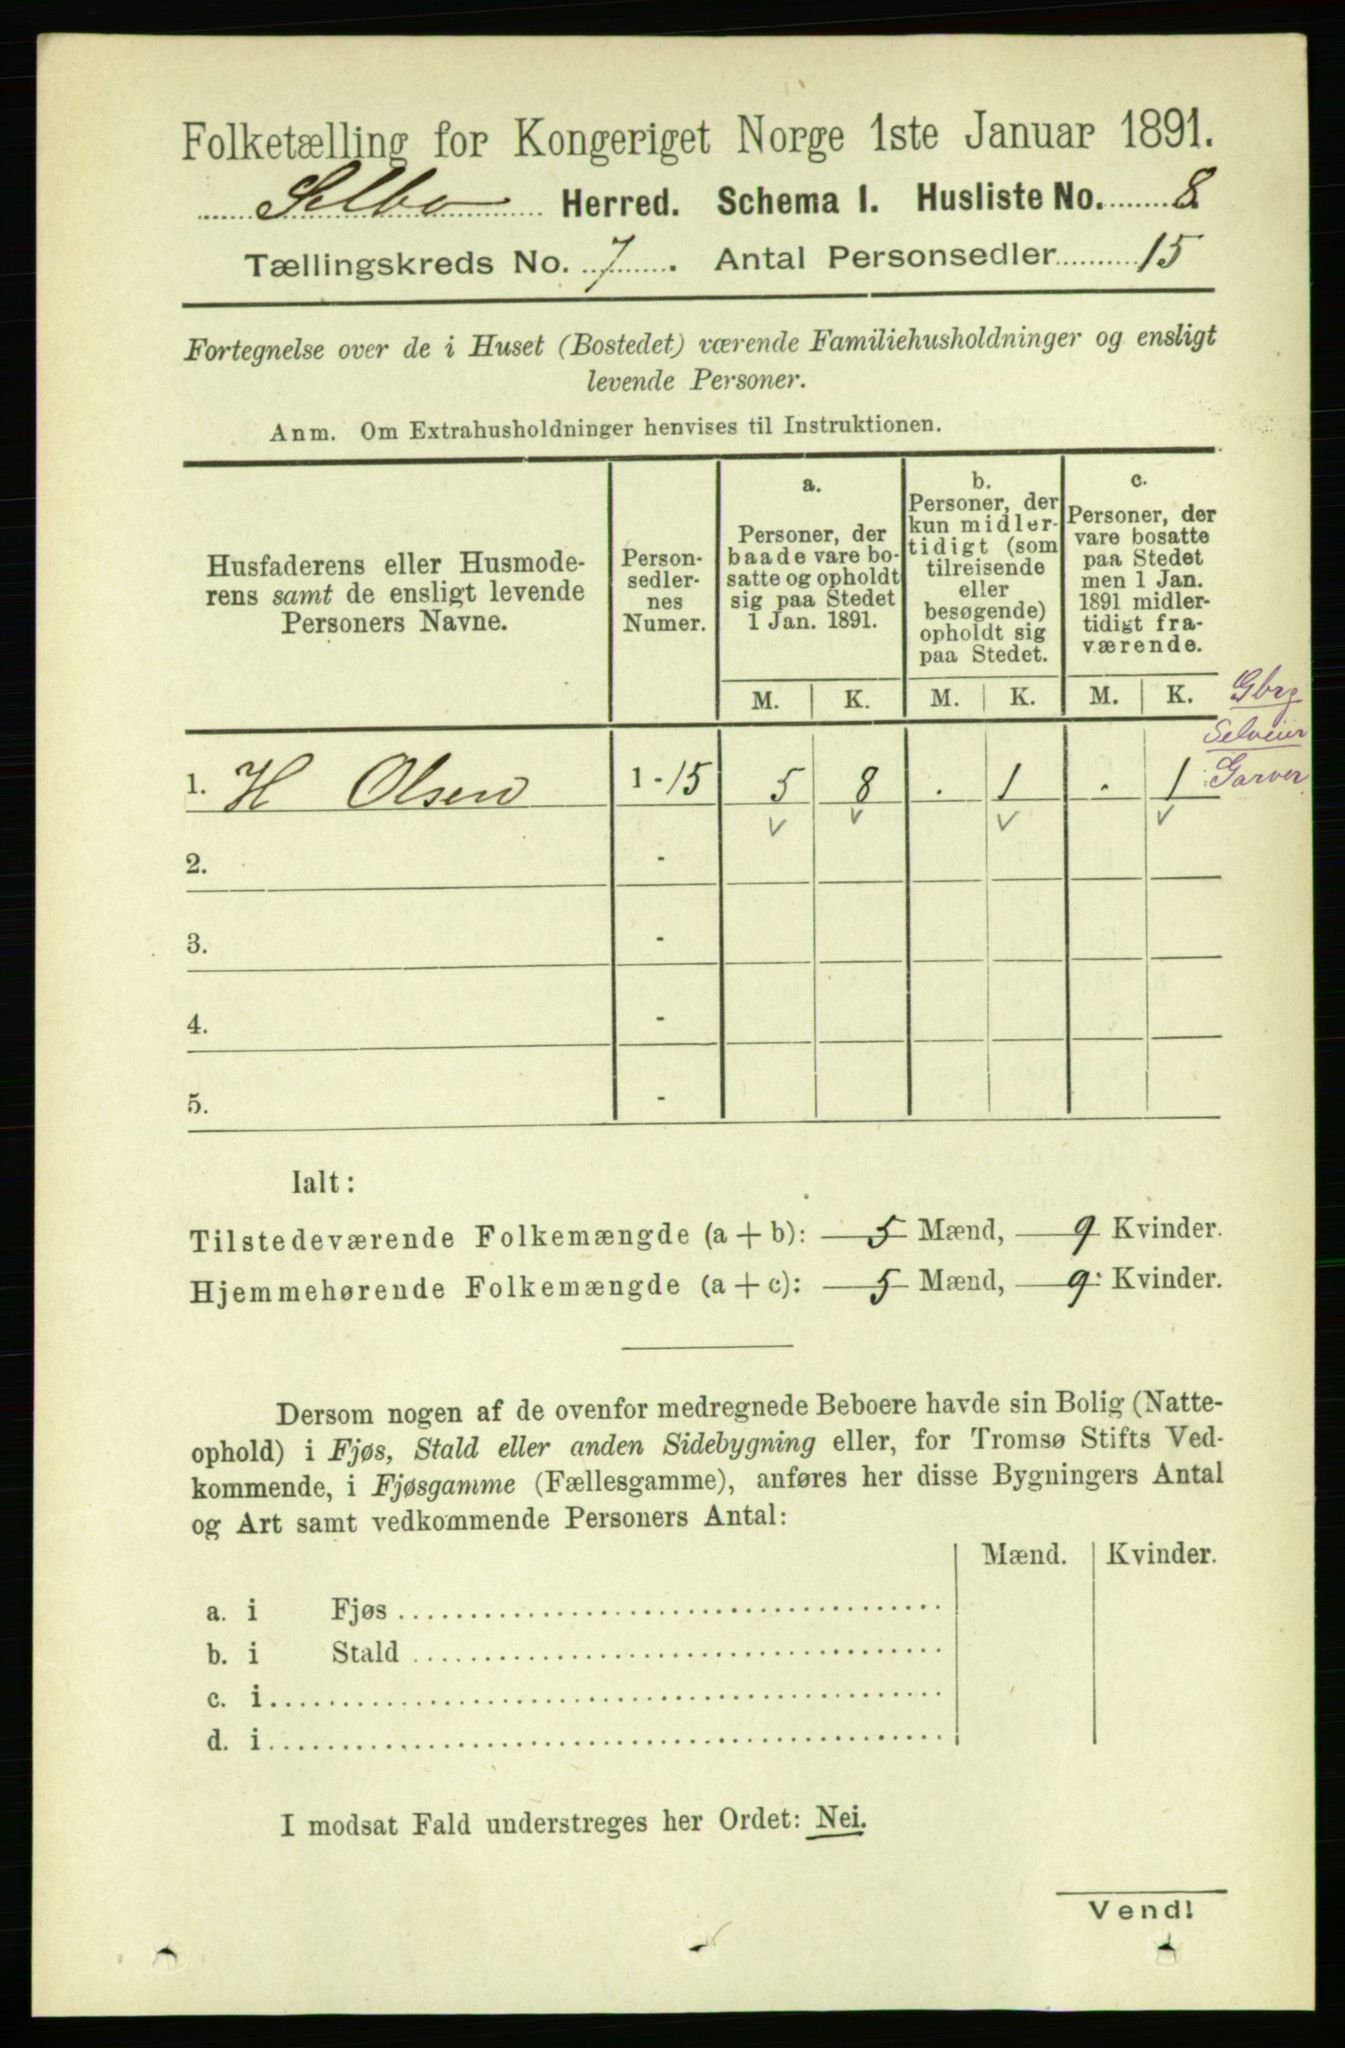 Folketælling for Kongeriget Norge 1ste Januar 1891.
Selbo Herred. Schema I. Husliste No. 8
Tællingskreds No. 7. Antal Personsedler 15
Fortegnelse over de i Huset (Bostedet) værende Familiehusholdninger og ensligt
levende Personer.
Anm. Om Extrahusholdninger henvises til Instruktionen.
Husfaderens eller Husmode-
rens samt de ensligt levende
Personers Navne.
Person-
sedler-
nes
Numer.
a.
Personer, der
baade vare bo-
satte og opholdt
sig paa Stedet
1 Jan. 1891.
b.
Personer, der
kun midler-
tidigt (som
tilreisende
eller
besøgende)
opholdt sig
paa Stedet.
c.
Personer, der
vare bosatte
paa Stedet
men 1 Jan.
1891 midler-
tidigt fra-
værende.
M. K. M. K. M. K.
Gbrg
Selveier
Garver
1. H Olsen 1-15 5 8 . 1 . 1
2. -
3. -
4. -
5. -
Ialt:
Tilstedeværende Folkemængde (a + b): 5 Mænd, 9 Kvinder.
Hjemmehørende Folkemængde (a + c): 5 Mænd, 9 Kvinder.
Dersom nogen af de ovenfor medregnede Beboere havde sin Bolig (Natte-
ophold) i Fjøs, Stald eller anden Sidebygning eller, for Tromsø Stifts Ved-
kommende, i Fjøsgamme (Fællesgamme), anføres her disse Bygningers Antal
og Art samt vedkommende Personers Antal:
Mænd. Kvinder.
a. i Fjøs
b. i Stald
c. i
d. i
I modsat Fald understreges her Ordet: Nei.
Vend!